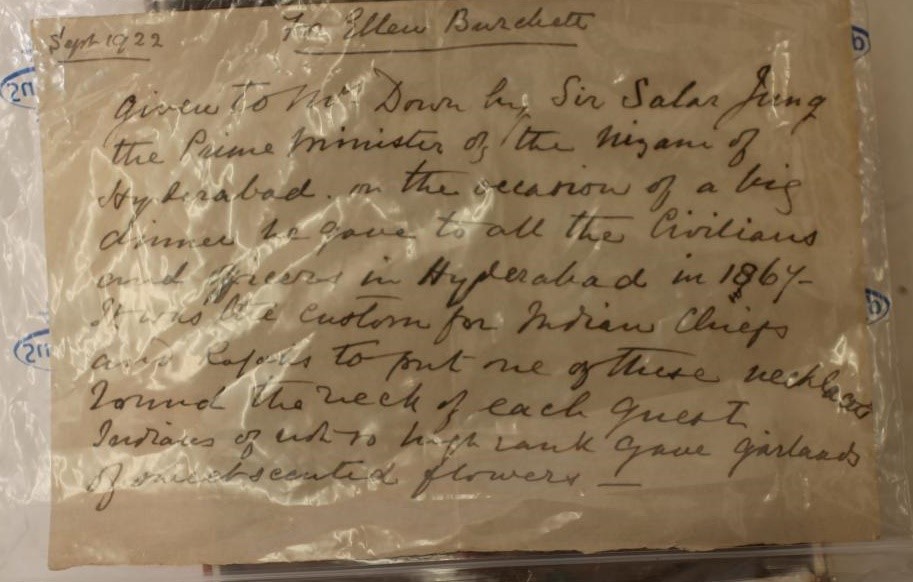 Sept 1922
For Ellen Burchett
given to Mrs Down by Sir Salar Jung
the Prime Minister of the Nizam of
Hyderabad. on the occasion of a big
dinner he gave to all the Civilians
and Officers in Hyderabad in 1867-
It was the custom for Indian Chiefs
and Rajahs to put one of these necklaces
round the neck of each guest
Indians of not so high rank gave garlands
of sweet scented flowers —